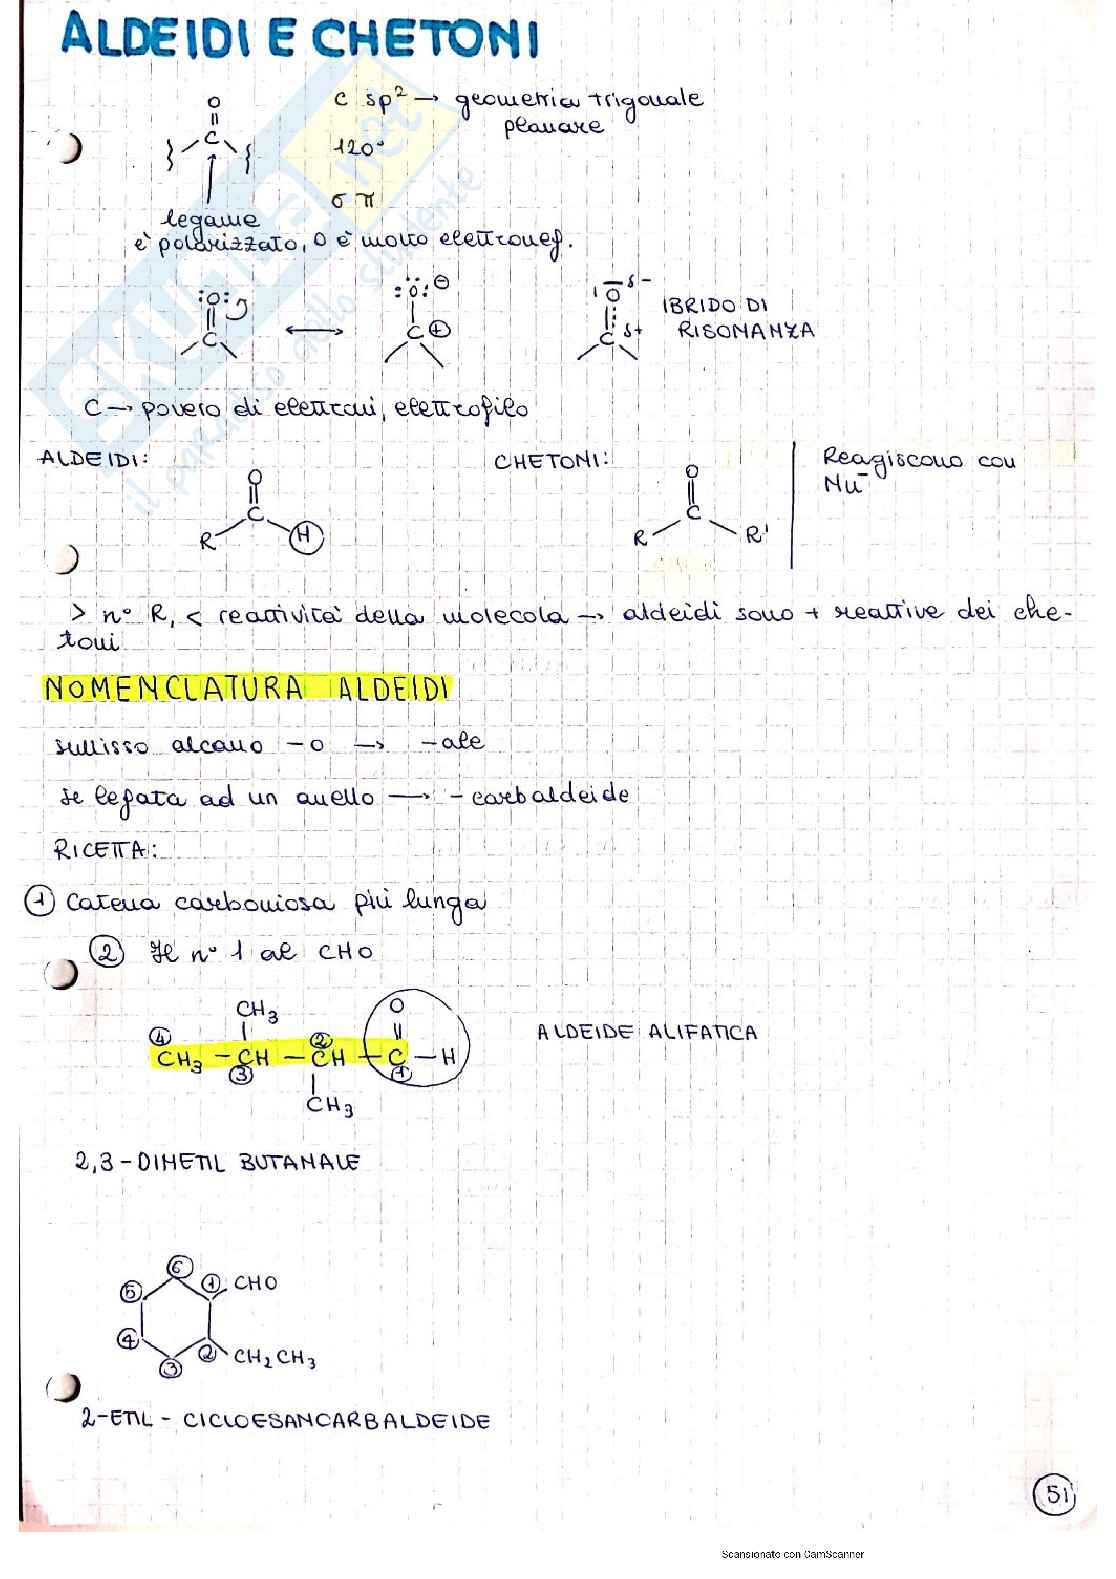 ALDEIDI E CHETONI
O
C
C sp² → geometria trigonale
planare
120°
σ π
legame
è polarizzato, O è molto elettroneg.
:O:
C
:O: ⊖
C ⊕
O δ-
C δ+
IBRIDO DI
RISONANZA
C → povero di elettroni, elettrofilo
ALDEIDI:
O
C
R H
CHETONI:
O
C
R R'
Reagiscono con
Nu⁻
> n° R, < reattività della molecola → aldeidi sono + reattive dei che-
toni
NOMENCLATURA ALDEIDI
suffisso alcano -o → -ale
se legata ad un anello → -carbaldeide
RICETTA:
① Catena carboniosa più lunga
② Il n° 1 al CHO
CH₃ O
④ ②
CH₃ - CH - CH - C - H
③ ①
CH₃
ALDEIDE ALIFATICA
2,3-DIMETIL BUTANALE
⑥
⑤ ① CHO
④ ② CH₂CH₃
③
2-ETIL - CICLOESANCARBALDEIDE
51
Scansionato con CamScanner
SKUOLA.net
il paradiso dello studente